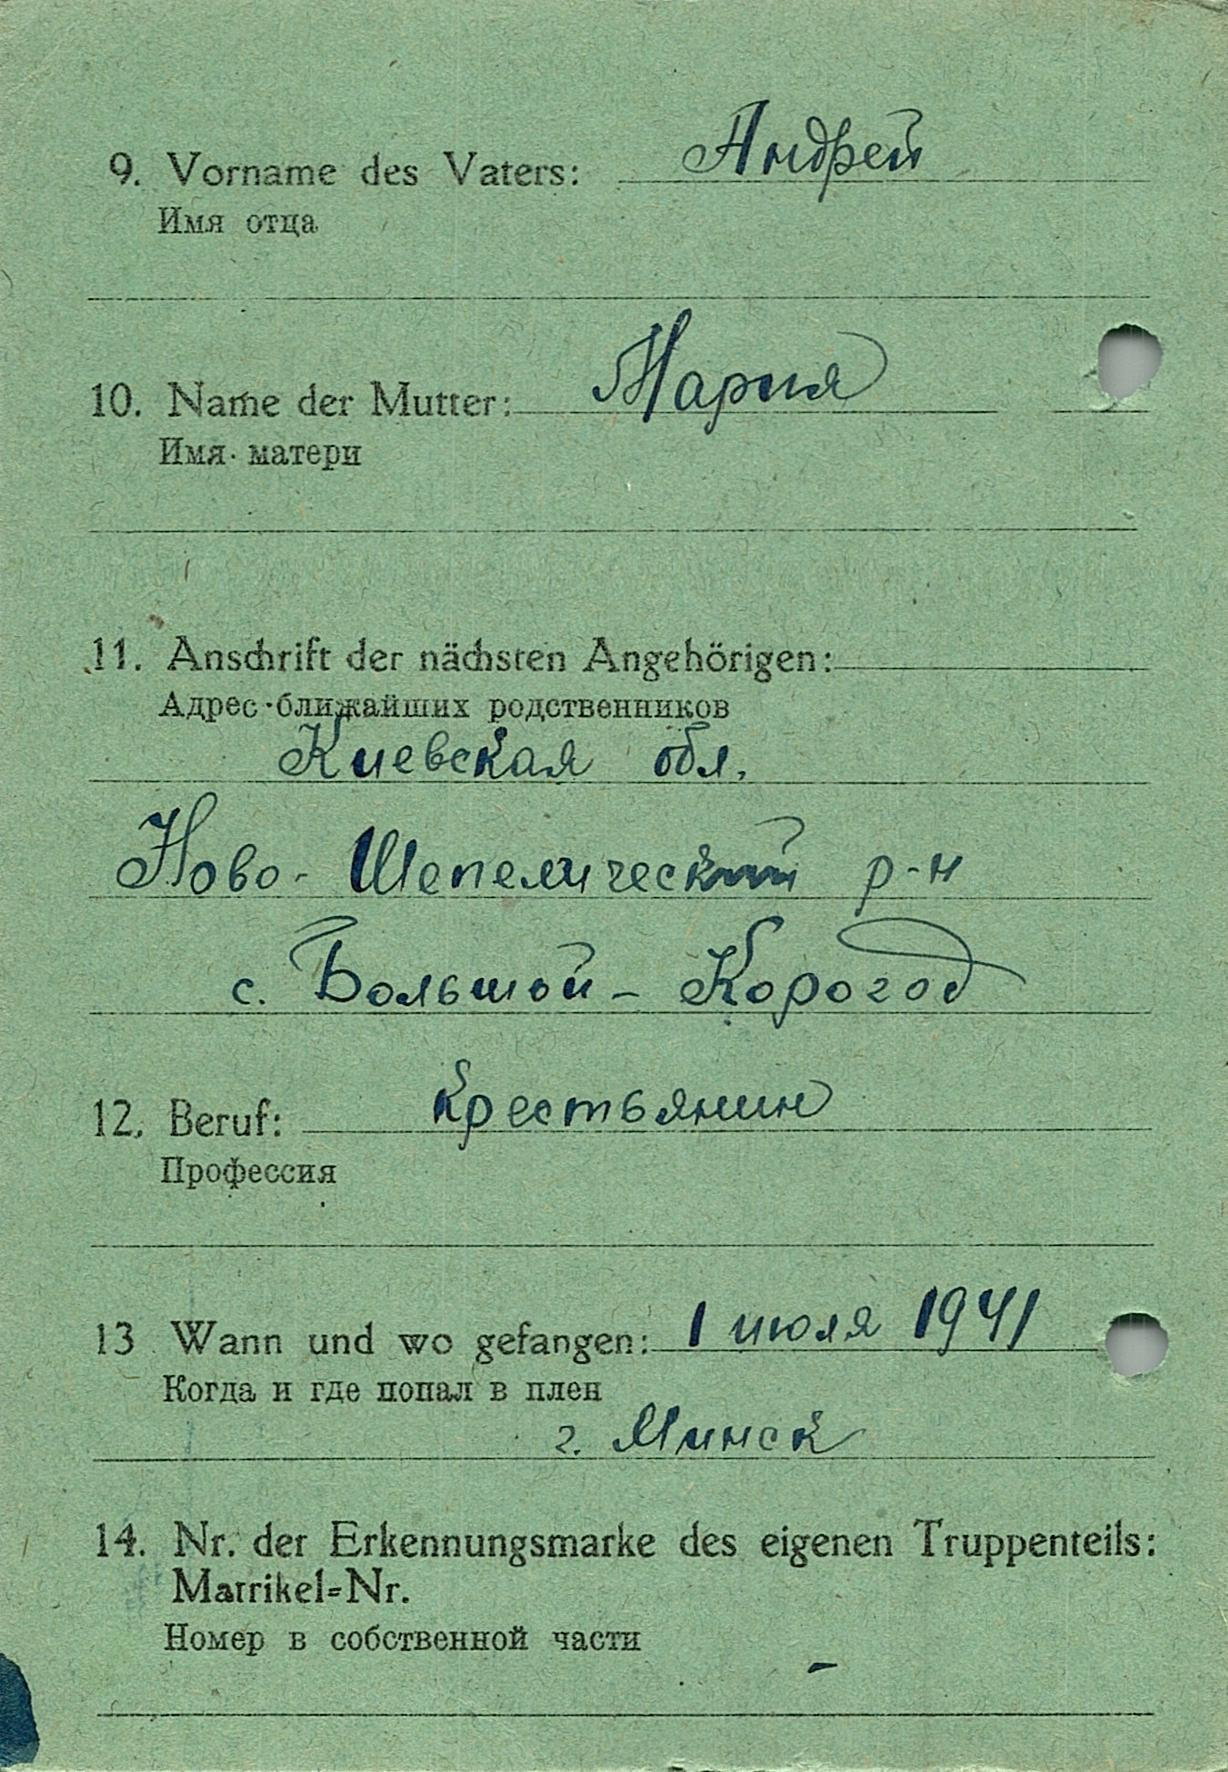 9. Vorname des Vaters: Андрей
Имя отца
10. Name der Mutter: Мария
Имя матери
11. Anschrift der nächsten Angehörigen:
Адрес ближайших родственников
Киевская обл.
Ново-Шепелический р-н
с. Большой-Корогод
12. Beruf: крестьянин
Профессия
13 Wann und wo gefangen: 1 июля 1941
Когда и где попал в плен
г. Минск
14. Nr. der Erkennungsmarke des eigenen Truppenteils:
Matrikel=Nr.
Номер в собственной части
–